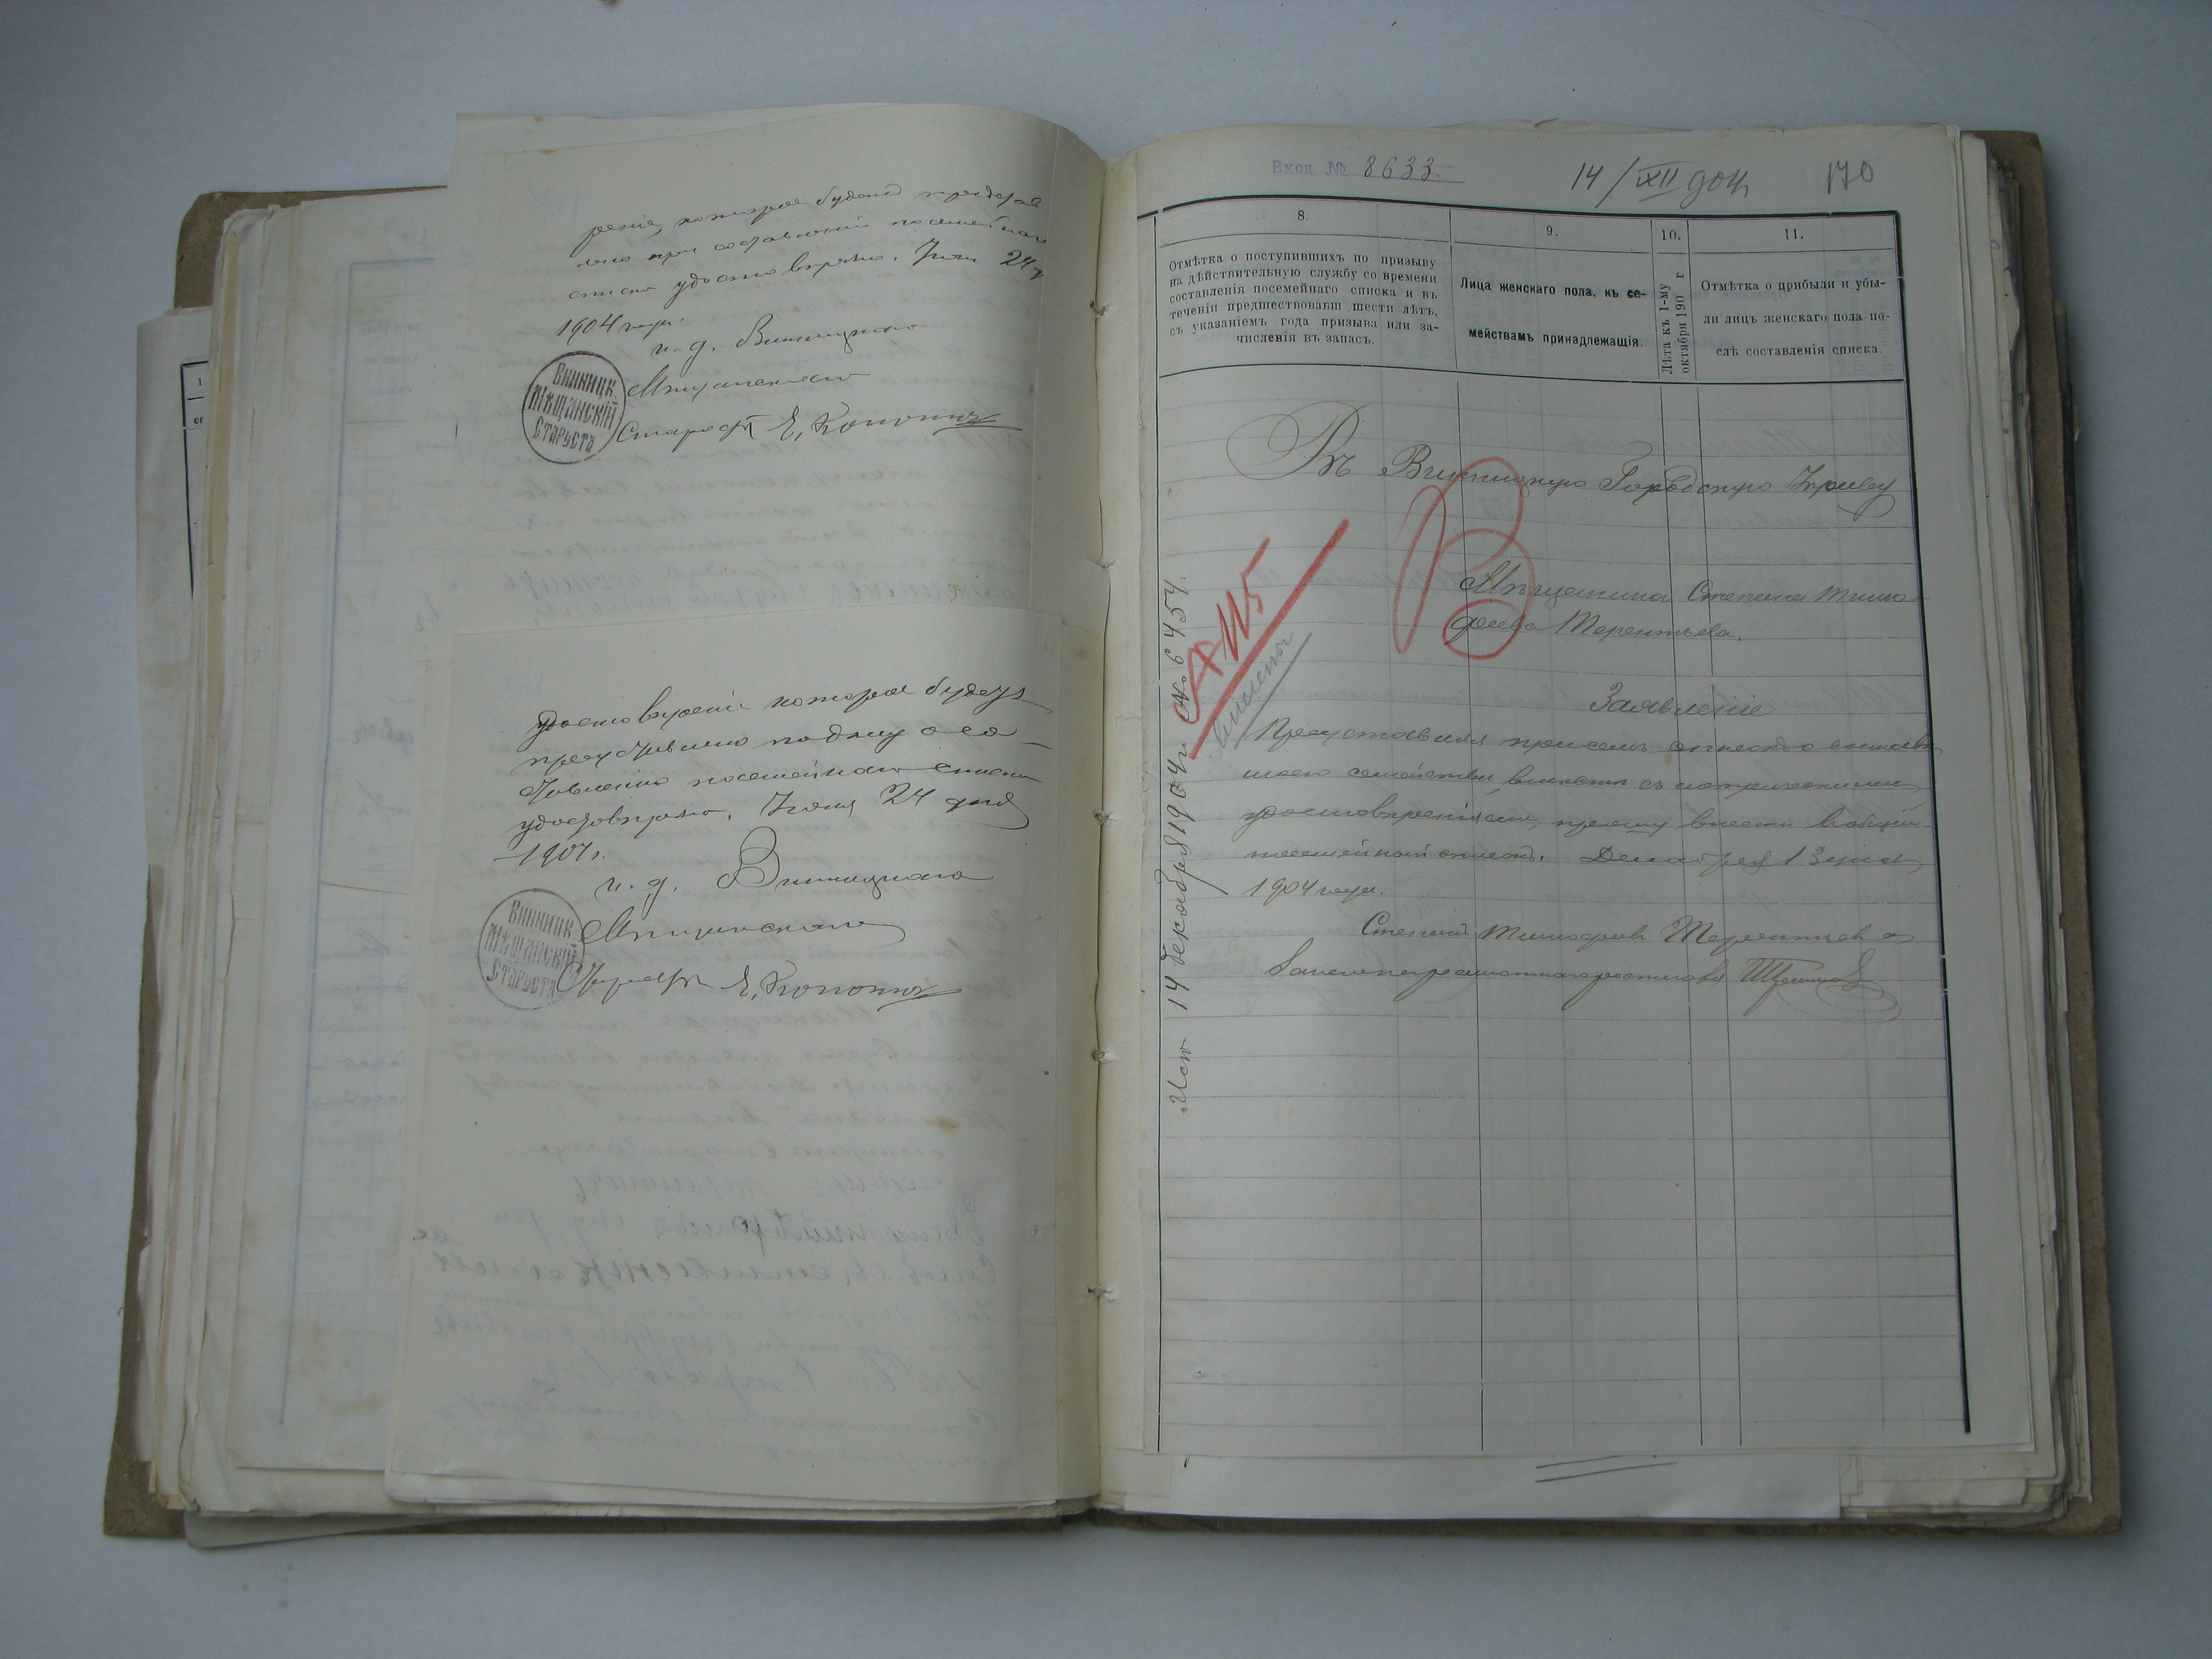 рение, которое будет представ
лено при составлении посемейнаго
списка удостоверяю. Июня 24 д
1904 года.
и. д. Винницкаго
Мещанскаго
Старосты Е. Кононъ
ВИННИЦК.
МѢЩАНСКІЙ
СТАРОСТА
удостоверение которое будет
представлено подану о со-
ставлении посемейнаго списка
удостоверяю. Июня 24 дня
1904 г.
и. д. Винницкаго
Мещанскаго
Старосты
ВИННИЦК.
МѢЩАНСКІЙ
СТАРОСТА
Вход. № 8633.
14/XII 904
170
8.
Отмѣтка о поступившихъ по призыву
на дѣйствительную службу со времени
составленія посемейнаго списка и въ
теченіи предшествовавш шести лѣтъ,
съ указаніемъ года призыва или за-
численія въ запасъ.
9.
Лица женскаго пола, къ се-
мействамъ принадлежащія.
10.
Лѣта къ 1-му
октября 190 г
11.
Отмѣтка о прибыли и убы-
ли лицъ женскаго пола по-
слѣ составленія списка.
Въ Винницкую Городскую Управу
Мѣщанина Степана Тимо
феева Терентьева.
Заявленіе
Представляя при семъ списокъ о составѣ
моего семейства, вмѣстѣ съ метрическими
удостовѣреніями, прошу внести въ общій
посемейный списокъ. Декабря 13 дня
1904 года.
Степанъ Тимофеевъ Терентьевъ а
за него неграмотнаго росписался
Исп 14 декабря 1904 г. № 6454.
А 115